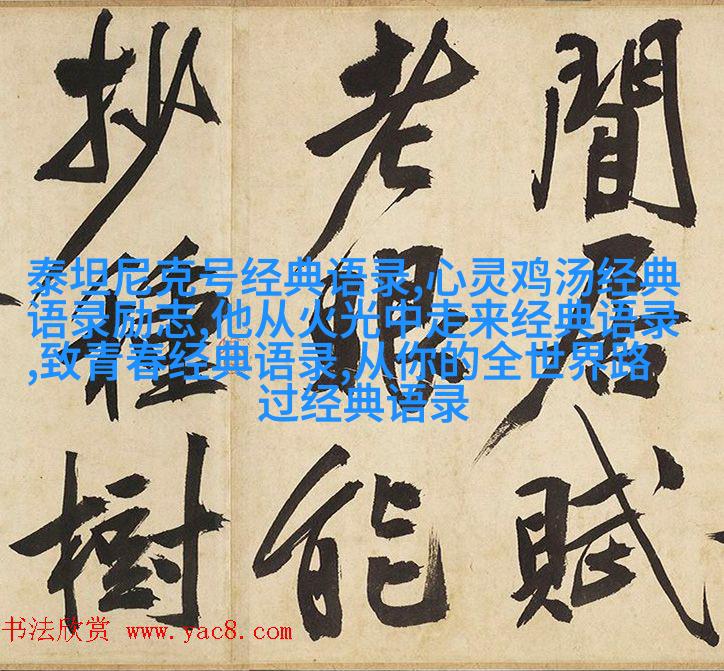 閒居賦
老眼能
抄種樹
泰坦尼克号经典语录,心灵鸡汤经典
语录励志,他从火光中走来经典语录
,致青春经典语录,从你的全世界路
过经典语录
书法欣赏 www.yac8.com